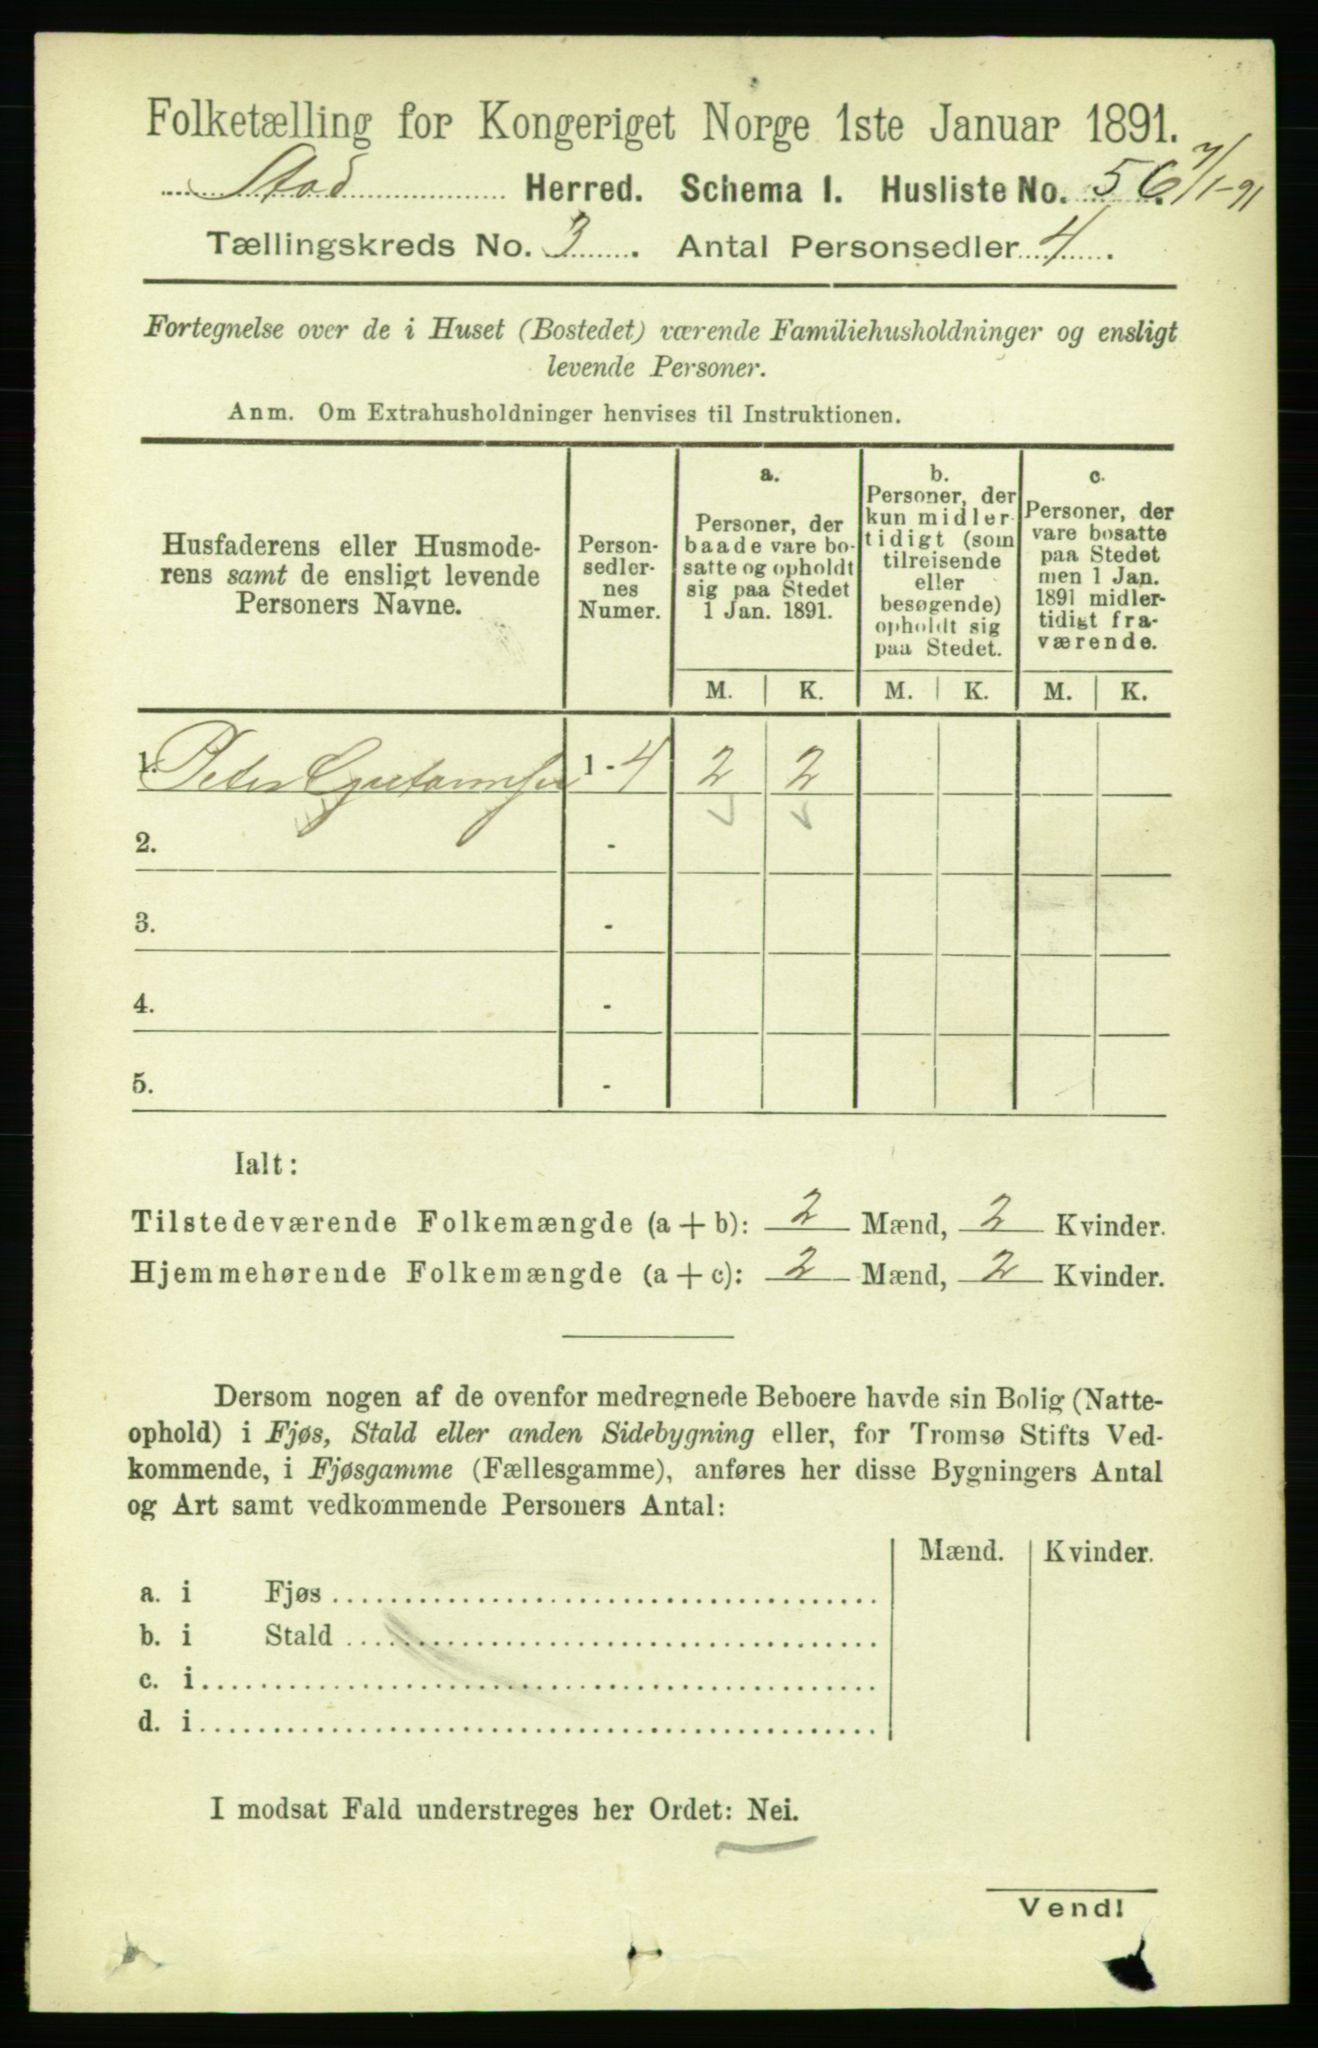 Folketælling for Kongeriget Norge 1ste Januar 1891.
Stod Herred. Schema I. Husliste No. 56. 7/1-91
Tællingskreds No. 3. Antal Personsedler 4.
Fortegnelse over de i Huset (Bostedet) værende Familiehusholdninger og ensligt
levende Personer.
Anm. Om Extrahusholdninger henvises til Instruktionen.
Husfaderens eller Husmode-
rens samt de ensligt levende
Personers Navne.
Person-
sedler-
nes
Numer.
a.
Personer, der
baade vare bo-
satte og opholdt
sig paa Stedet
1 Jan. 1891.
b.
Personer, der
kun midler-
tidigt (som
tilreisende
eller
besøgende)
opholdt sig
paa Stedet.
c.
Personer, der
vare bosatte
paa Stedet
men 1 Jan.
1891 midler-
tidigt fra-
værende.
M. K. M. K. M. K.
1. Peter 1 - 4 2 2
2. -
3. -
4. -
5. -
Ialt:
Tilstedeværende Folkemængde (a + b): 2 Mænd, 2 Kvinder.
Hjemmehørende Folkemængde (a + c): 2 Mænd, 2 Kvinder.
Dersom nogen af de ovenfor medregnede Beboere havde sin Bolig (Natte-
ophold) i Fjøs, Stald eller anden Sidebygning eller, for Tromsø Stifts Ved-
kommende, i Fjøsgamme (Fællesgamme), anføres her disse Bygningers Antal
og Art samt vedkommende Personers Antal:
Mænd. Kvinder.
a. i Fjøs
b. i Stald
c. i
d. i
I modsat Fald understreges her Ordet: Nei.
Vend!